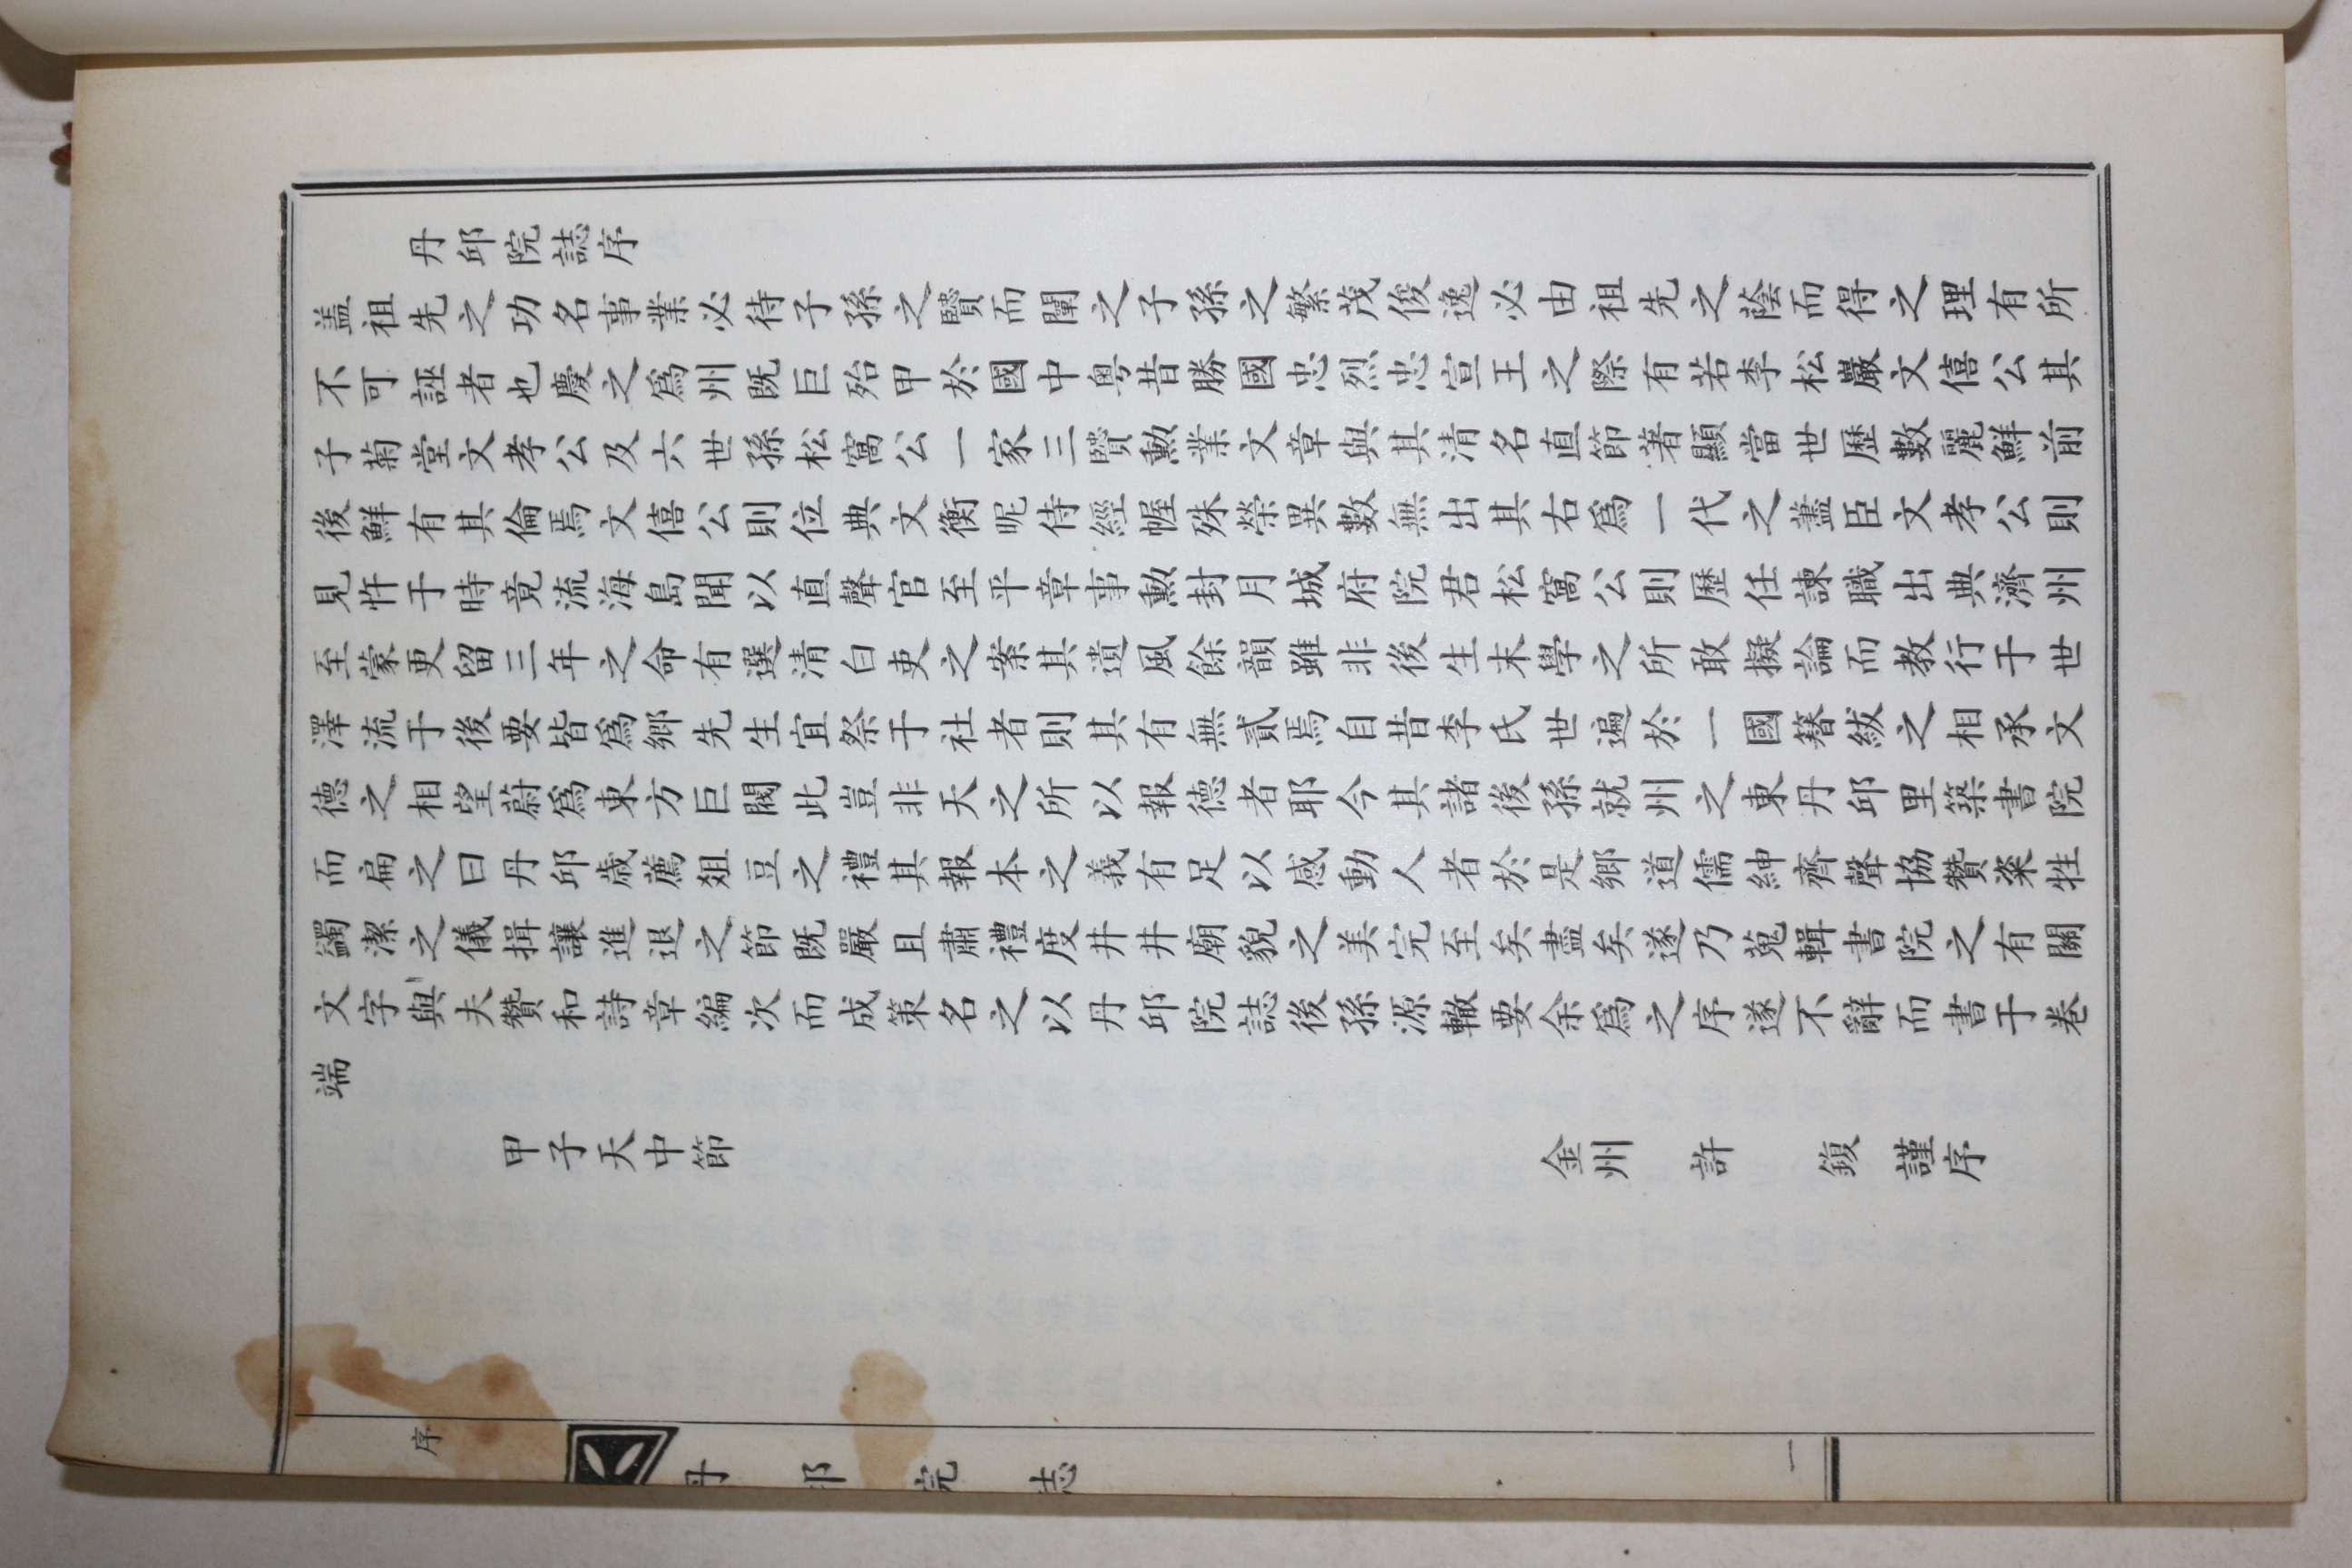 丹邱院誌序
盖祖先之功名事業必待子孫之賢而闡之子孫之繁茂俊逸必由祖先之蔭而得之理有所
不可誣者也慶之爲州既巨殆甲於國中粤昔勝國忠烈忠宣王之際有若李松巖文僖公其
子菊堂文孝公及六世孫松窩公一家三賢勳業文章與其清名直節著顯當世歷數麗鮮前
後鮮有其倫焉文僖公則位典文衡昵侍經幄殊榮異數無出其右爲一代之藎臣文孝公則
見忤于時竟流海島聞以直聲官至平章事勳封月城府院君松窩公則歷任諫職出典濟州
至蒙更留三年之命有選清白吏之案其遺風餘韻雖非後生末學之所敢擬論而教行于世
澤流于後要皆爲鄉先生宜祭于社者則其有無貳焉自昔李氏世遍於一國簪紱之相承文
德之相望蔚爲東方巨閥此豈非天之所以報德者耶今其諸後孫就州之東丹邱里築書院
而扁之曰丹邱歲薦俎豆之禮其報本之義有足以感動人者於是鄉道儒紳齊聲協贊粢牲
蠲潔之儀揖讓進退之節既嚴且肅禮度井井廟貌之美完至矣盡矣遂乃蒐輯書院之有關
文字與夫贊和詩章編次而成策名之以丹邱院誌後孫源轍要余爲之序遂不辭而書于卷
端
甲子天中節　金州　許　鍑　謹序
序
丹邱院誌
一